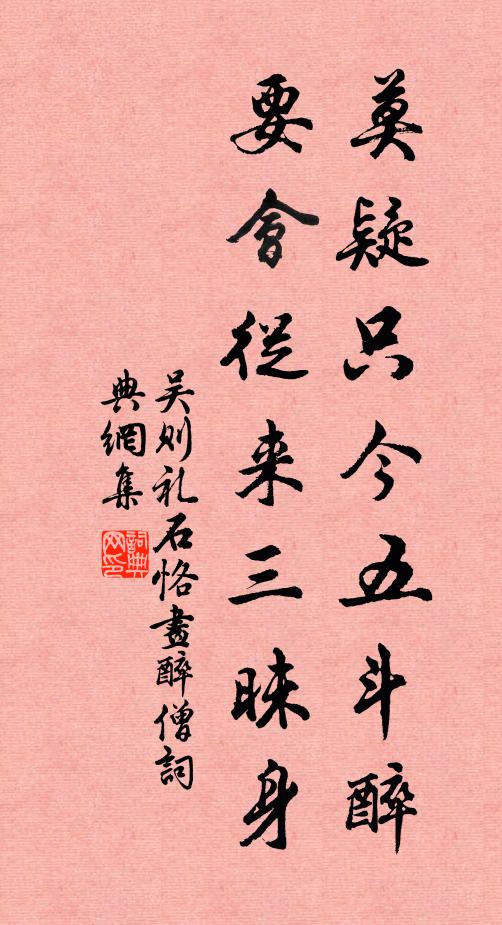 莫疑只今五斗醉
要會從来三昧身
吴则礼石恪畫醉僧詞
典網集
詞典网印